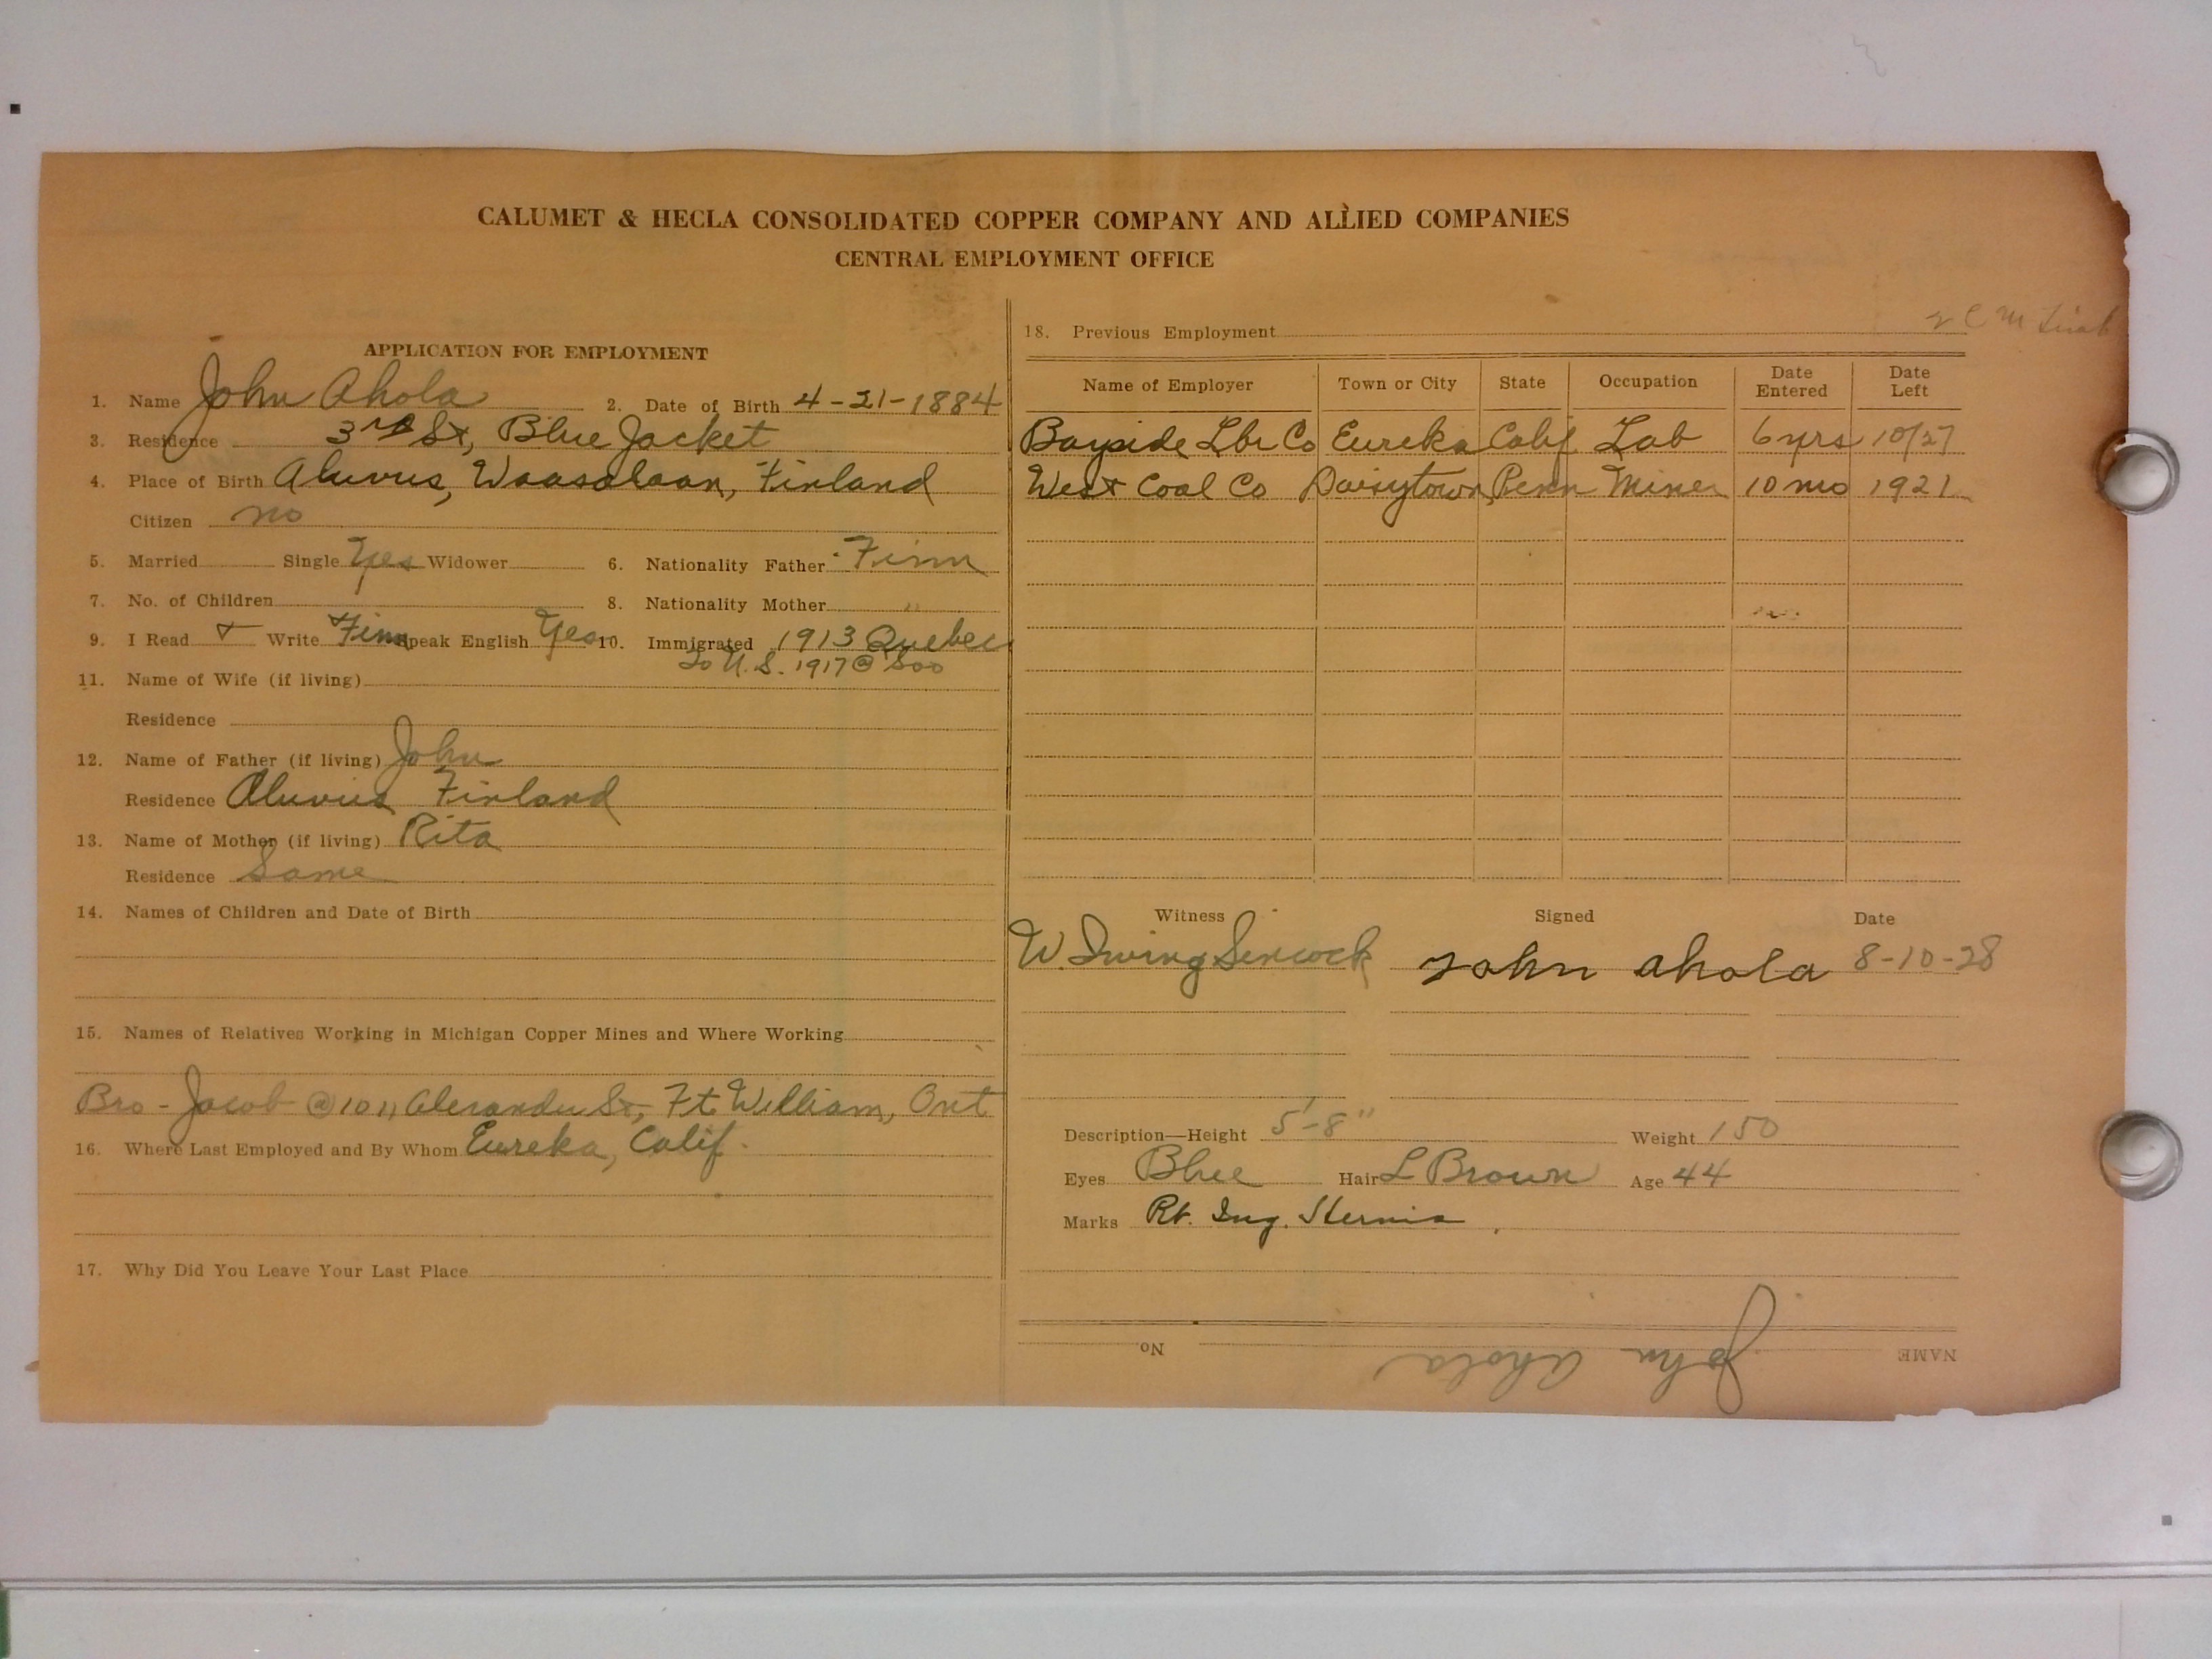 CALUMET & HECLA CONSOLIDATED COPPER COMPANY AND ALLIED COMPANIES
CENTRAL EMPLOYMENT OFFICE
APPLICATION FOR EMPLOYMENT
1. Name John Ahola 2. Date of Birth 4-21-1884
3. Residence 3rd St, Blue Jacket
4. Place of Birth Aluvus, Waasalaan, Finland
Citizen no
5. Married Single Yes Widower 6. Nationality Father Finn
7. No. of Children 8. Nationality Mother "
9. I Read + Write Finn Speak English Yes 10. Immigrated 1913 Quebec
to U.S. 1917 @ Soo
11. Name of Wife (if living)
Residence
12. Name of Father (if living) John
Residence Aluvus Finland
13. Name of Mother (if living) Rita
Residence Same
14. Names of Children and Date of Birth
15. Names of Relatives Working in Michigan Copper Mines and Where Working
Bro - Jacob @ 1011 Alexander St, Ft William, Ont
16. Where Last Employed and By Whom Eureka, Calif.
17. Why Did You Leave Your Last Place
18. Previous Employment
Name of Employer Town or City State Occupation Date Entered Date Left
Bayside Lbr Co Eureka Calif Lab 6 yrs 10/27
West Coal Co Daisytown Penn Miner 10 mo 1921
Witness Signed Date
W. Irving John Ahola 8-10-28
Description—Height 5'-8" Weight 150
Eyes Blue Hair L Brown Age 44
Marks Rt. Ing. Hernia
NAME John Ahola No.